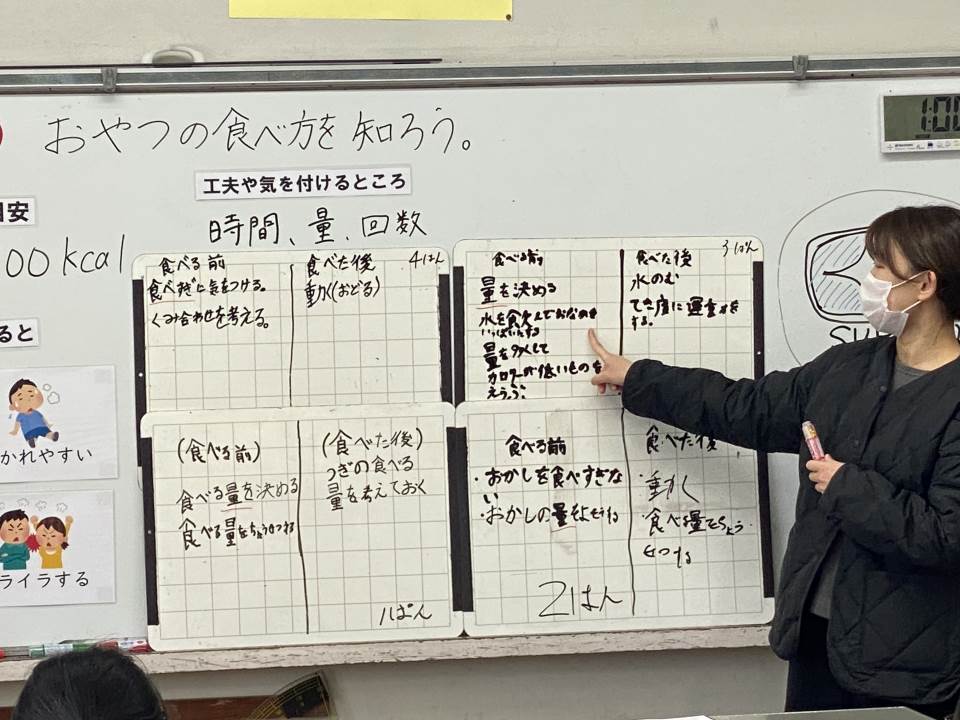 おやつの食べ方を知ろう。
工夫や気を付けるところ
時間、量、回数
安
00kcal
ると
かれやすい
ライラする
食べる前
食べすぎに気をつける。
くみ合わせを考える。
食べた後
動く(おどる)
4はん
食べる前
量を決める
水を
量を
カロリーが低いものを
えらぶ。
食べた後
水のむ
する。
3ぱん
(食べる前)
食べる量を決める
食べる量をちょうせつする
(食べた後)
つぎの食べる
量を考えておく
1ぱん
食べる前
・おかしを食べすぎな
い
・おかしの量を
2はん
食べた後
・動く
・食べる量をちょう
せつする
1:00
SU